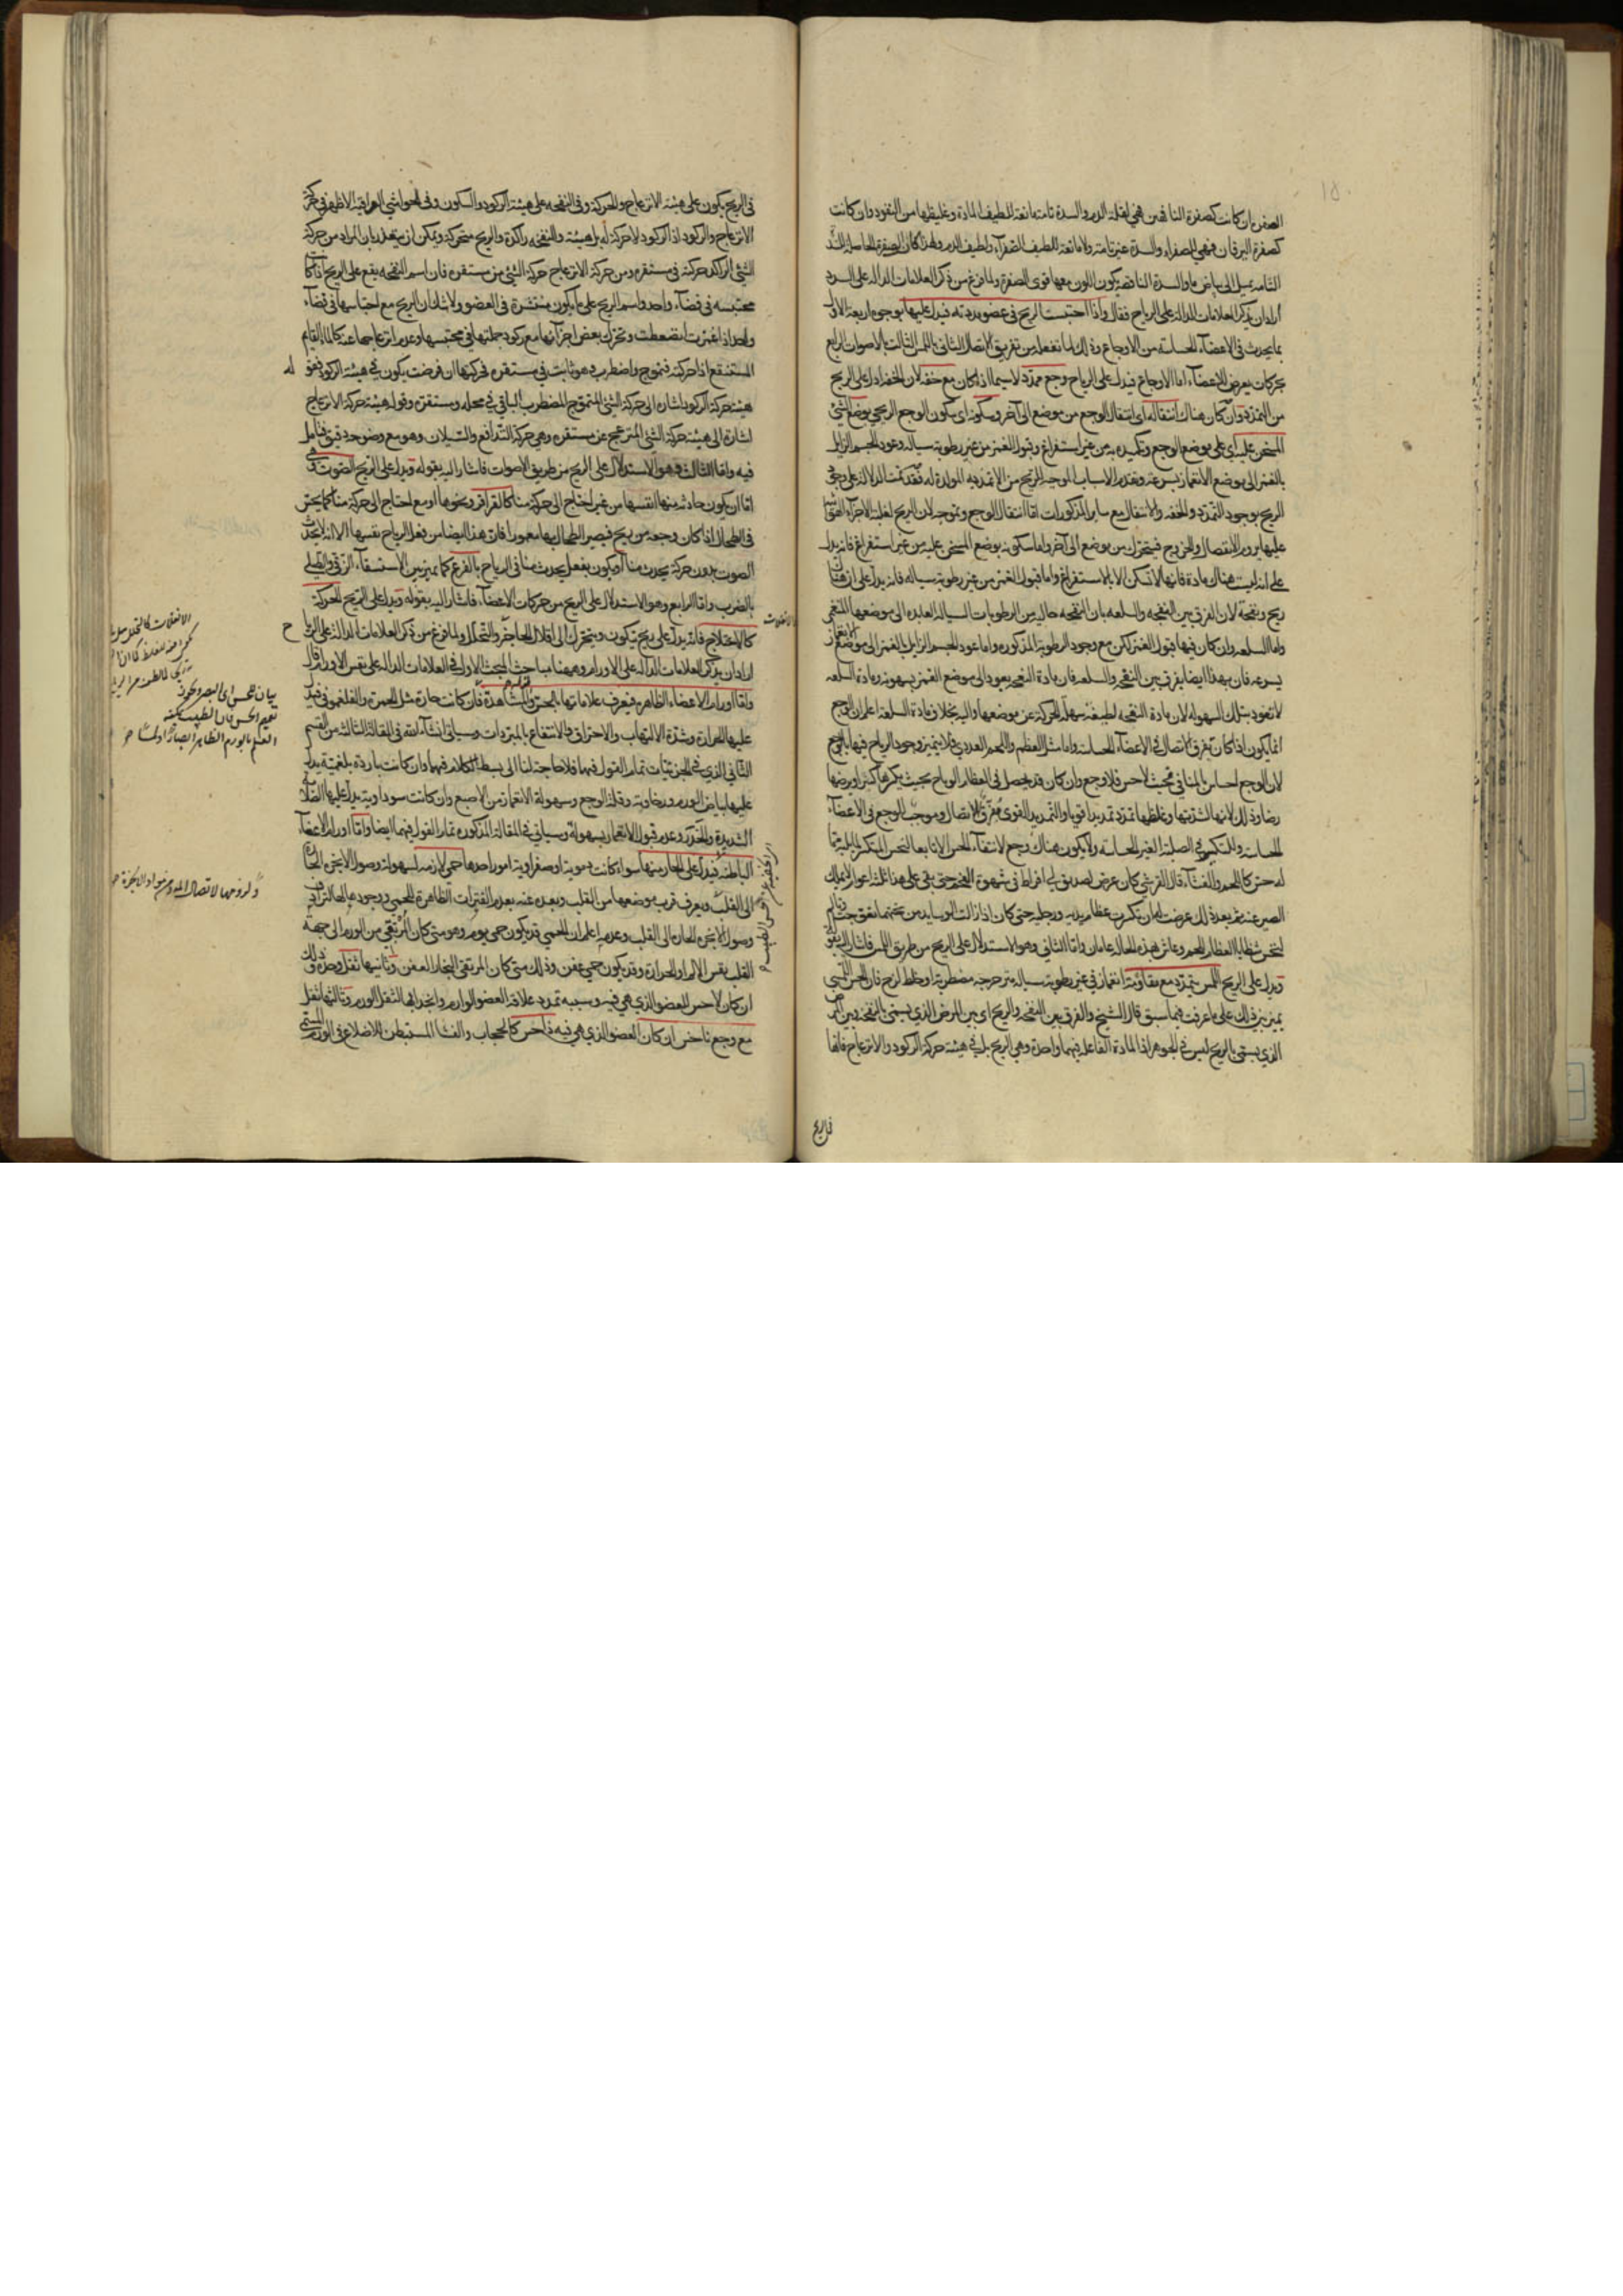 الصفرة ان كانت كصفرة الناقهين فهي لقلة الدم والسدة تامة مانعة للطيف المادة وغليظها من النفوذ وان كانت
كصفرة اليرقان فهي للصفراء والسدة غير تامة ولا مانعة للطيف الصفراء ولطيف الدم ولهذا كان الصفرة الحاصلة
التامة يميل الى بياض ما والسدة الناقصة يكون اللون معها قوى الصفرة ولما فرغ من ذكر العلامات الدالة على السدد
اراد ان يذكر العلامات الدالة على الرياح فقال واذا احتبست الريح في عضو مددته فيدل عليها بوجوه اربعة الاول
بما يحدث في الاعضاء الحساسة من الاوجاع وذلك لما تفعله من تفريق الاتصال الثاني باللمس الثالث بالاصوات الرابع
بحركات يعرض للاعضاء اما الاوجاع فيدل على الرياح وجع ممدد لاسيما اذا كان مع خفة لان الخفة ادل على الريح
من التمدد وان كان هناك انتقال ما اى انتقال الوجع من موضع الى آخر وسكونه اى سكون الوجع الريحي بوضع الشئ
المسخن عليه اى على موضع الوجع وتكميده به من غير استفراغ وقبول الغمز من غير رطوبة سيالة وعود الجسم الزايل
بالغمز الى موضع الانغماز بسرعة وتقدم الاسباب الموجبة للريح من الاغذية المولدة له فقد تمت الدلالة على وجع
الريح بوجود التمدد والخفة والانتقال مع ساير المذكورات اما انتقال الوجع وتموجه لان الريح لغلبة الاجزاء الهوائية
عليها يروم الانفصال والخروج فيتحرك من موضع الى آخر واما سكونه بوضع المسخن عليه من غير استفراغ فانه يدل
على انه ليست هناك مادة فانها لا تسكن الا بالاستفراغ واما قبول الغمز من غير رطوبة سيالة فانه يدل على ان هناك
ريح ونفخة لان الفرق بين النفخة والسلعة بان النفخة خالية من الرطوبات السيالة العايدة الى موضعها المنغمز
واما السلعة وان كان فيها قبول الغمز لكن مع وجود الرطوبة المذكورة واما عود الجسم الزايل بالغمز الى موضع الانغماز
بسرعة فان بهذا ايضا يفرق بين النفخة والسلعة فان مادة النفخة يعود الى موضع الغمز بسهولة ومادة السلعة
لا تعود بتلك السهولة لان مادة النفخة لطيفة سهلة الحركة عن موضعها واليه بخلاف مادة السلعة اعلم ان الوجع
انما يكون اذا كان تفرق الاتصال في الاعضاء الحساسة واما مثل العظم واللحم الغددي فلا يتميز وجود الرياح فيها بالوجع
لان الوجع احساس بالمنافي فحيث لا حس فلا وجع وان كان قد يحصل في العظام الرياح بحيث يكسرها كسرا ويرضها
رضا وذلك لانها لشدتها وغلظها تمدد تمديدا قويا والتمديد القوى مفرق للاتصال وموجب للوجع في الاعضاء
الحساسة وللتكسير في الصلبة الغير الحساسة ولا يكون هناك وجع لانتفاء الحس الا تابعا لنخس المنكسر لما يليه
له حس كاللحم والغشاء قال القرشي كان عرض لصديق لي افراط في شهوة
لنخس شظايا العظام اللحم وعاش بهذه الحالة عامان واما الثاني وهو الاستدلال على الريح من طريق اللمس فاشار اليه بقوله
ويدل على الريح اللمس بتمدد مع مقاومة انغماز في غير رطوبة سيالة
يميز بين ذلك على ما عرفت فيما سبق قال الشيخ والفرق بين النفخة والريح اى بين المرض الذي يسمى بالنفخة وبين المرض
الذي يسمى بالريح ليس في الجوهر اذ المادة الفاعلة فيهما واحدة وهي الريح بل في هيئة حركة الركود والانزعاج فانها
في الريح يكون على هيئة الانزعاج والحركة وفي النفخة على هيئة الركود والسكون وفي الحواشي العراقية الاظهر في حركة
الانزعاج والركود اذ الركود لا حركة له بل هيئة والنفخة راكدة والريح متحركة ويمكن ان يعتذر بان المراد من حركة
الشئ الراكد حركته في مستقره ومن حركة الانزعاج حركة الشئ من مستقره فان اسم النفخة يقع على الريح اذا كانت
محتبسة في فضاء واحد واسم الريح على ما يكون منتشرة في العضو ولا شك ان الريح مع احتباسها في فضاء
واحد اذا غمزت انضغطت وتحرك بعض اجزائها مع ركود جملتها في محتبسها وعدم انزعاجها عنه كالماء القايم
المستنقع اذا حركته فتموج واضطرب وهو ثابت في مستقره فحركتها ان فرضت يكون في هيئة الركود فقوله
هيئة حركة الركود اشارة الى حركة الشئ المتموج المضطرب الباقي في محله ومستقره وقوله هيئة حركة الانزعاج
اشارة الى هيئة حركة الشئ المنزعج عن مستقره وهي حركة التدافع والسيلان وهو مع وضوحه دقيق فتامل
فيه واما الثالث وهو الاستدلال على الريح من طريق الاصوات فاشار اليه بقوله ويدل على الريح الصوت وهو
اما ان يكون حادثة منها انفسها من غير احتياج الى حركة منا كالقراقر ونحوها او مع احتياج الى حركة منا كما يحس
في الطحال اذا كان وجعه من ريح فيصير الطحال بها مغمورا فان هذا ايضا من فعل الرياح نفسها الا انه لا يحدث
الصوت بدون حركة يحدث منا او يكون بفعل يحدث منا في الرياح بالقرع كما يميز بين الاستسقاء الزقي والطبلي
بالضرب واما الرابع وهو الاستدلال على الريح من حركات الاعضاء فاشار اليه بقوله ويدل على الريح الحركة
كالاختلاج فانه يدل على ريح يتكون ويتحرك الى اقلال الحاجز والتحلل ولما فرغ من ذكر العلامات الدالة على الرياح
اراد ان يذكر العلامات الدالة على الاورام وههنا مباحث البحث الاول في العلامات الدالة على نفس الاورام قال
واما اورام الاعضاء الظاهرة فيعرف علاماتها بالحس والمشاهدة فان كانت حارة مثل الحمرة والفلغموني فيدل
عليها الحرارة وشدة الالتهاب والاحتراق والانتفاع بالمبردات وسياتي ان شاء الله في المقالة الثالثة من القسم
الثاني الذي في الجزئيات تمام القول فيها فلا حاجة لنا الى بسط الكلام فيها وان كانت باردة بلغمية يدل
عليها بياض الورم ورخاوته وقلة الوجع وسهولة الانغماز من الاصبع وان كانت سوداوية يدل عليها الصلابة
الشديدة والخدر وعدم قبول الانغماز بسهولة وسياتي في المقالة المذكورة تمام القول فيهما ايضا واما اورام الاعضاء
الباطنة فيدل على الحار منها سواء كانت دموية او صفراوية امور احدها حمى لازمة لسهولة وصول الابخرة الحارة
الى القلب ويعرف قرب موضعها من القلب وبعده عنه بعدم الفترات الظاهرة للحمى ووجودها
وصول الابخرة الحارة الى القلب وعدمه اعلم ان الحمى قد يكون حمى يوم وهو متى كان المرتقى من الورم الى جهة
القلب نفس الالم او الحرارة وقد يكون حمى عفن وذلك متى كان المرتقى البخار العفن وثانيها ثقل وحده وذلك
ان كان لا حس للعضو الذي هي فيه وسببه تمدد علاقة العضو الوارم وانجذابها لثقل الورم وثالثها ثقل
مع وجع ناخس ان كان العضو الذي هي فيه ذا حس كالحجاب والغشاء المستبطن للاضلاع في الورم